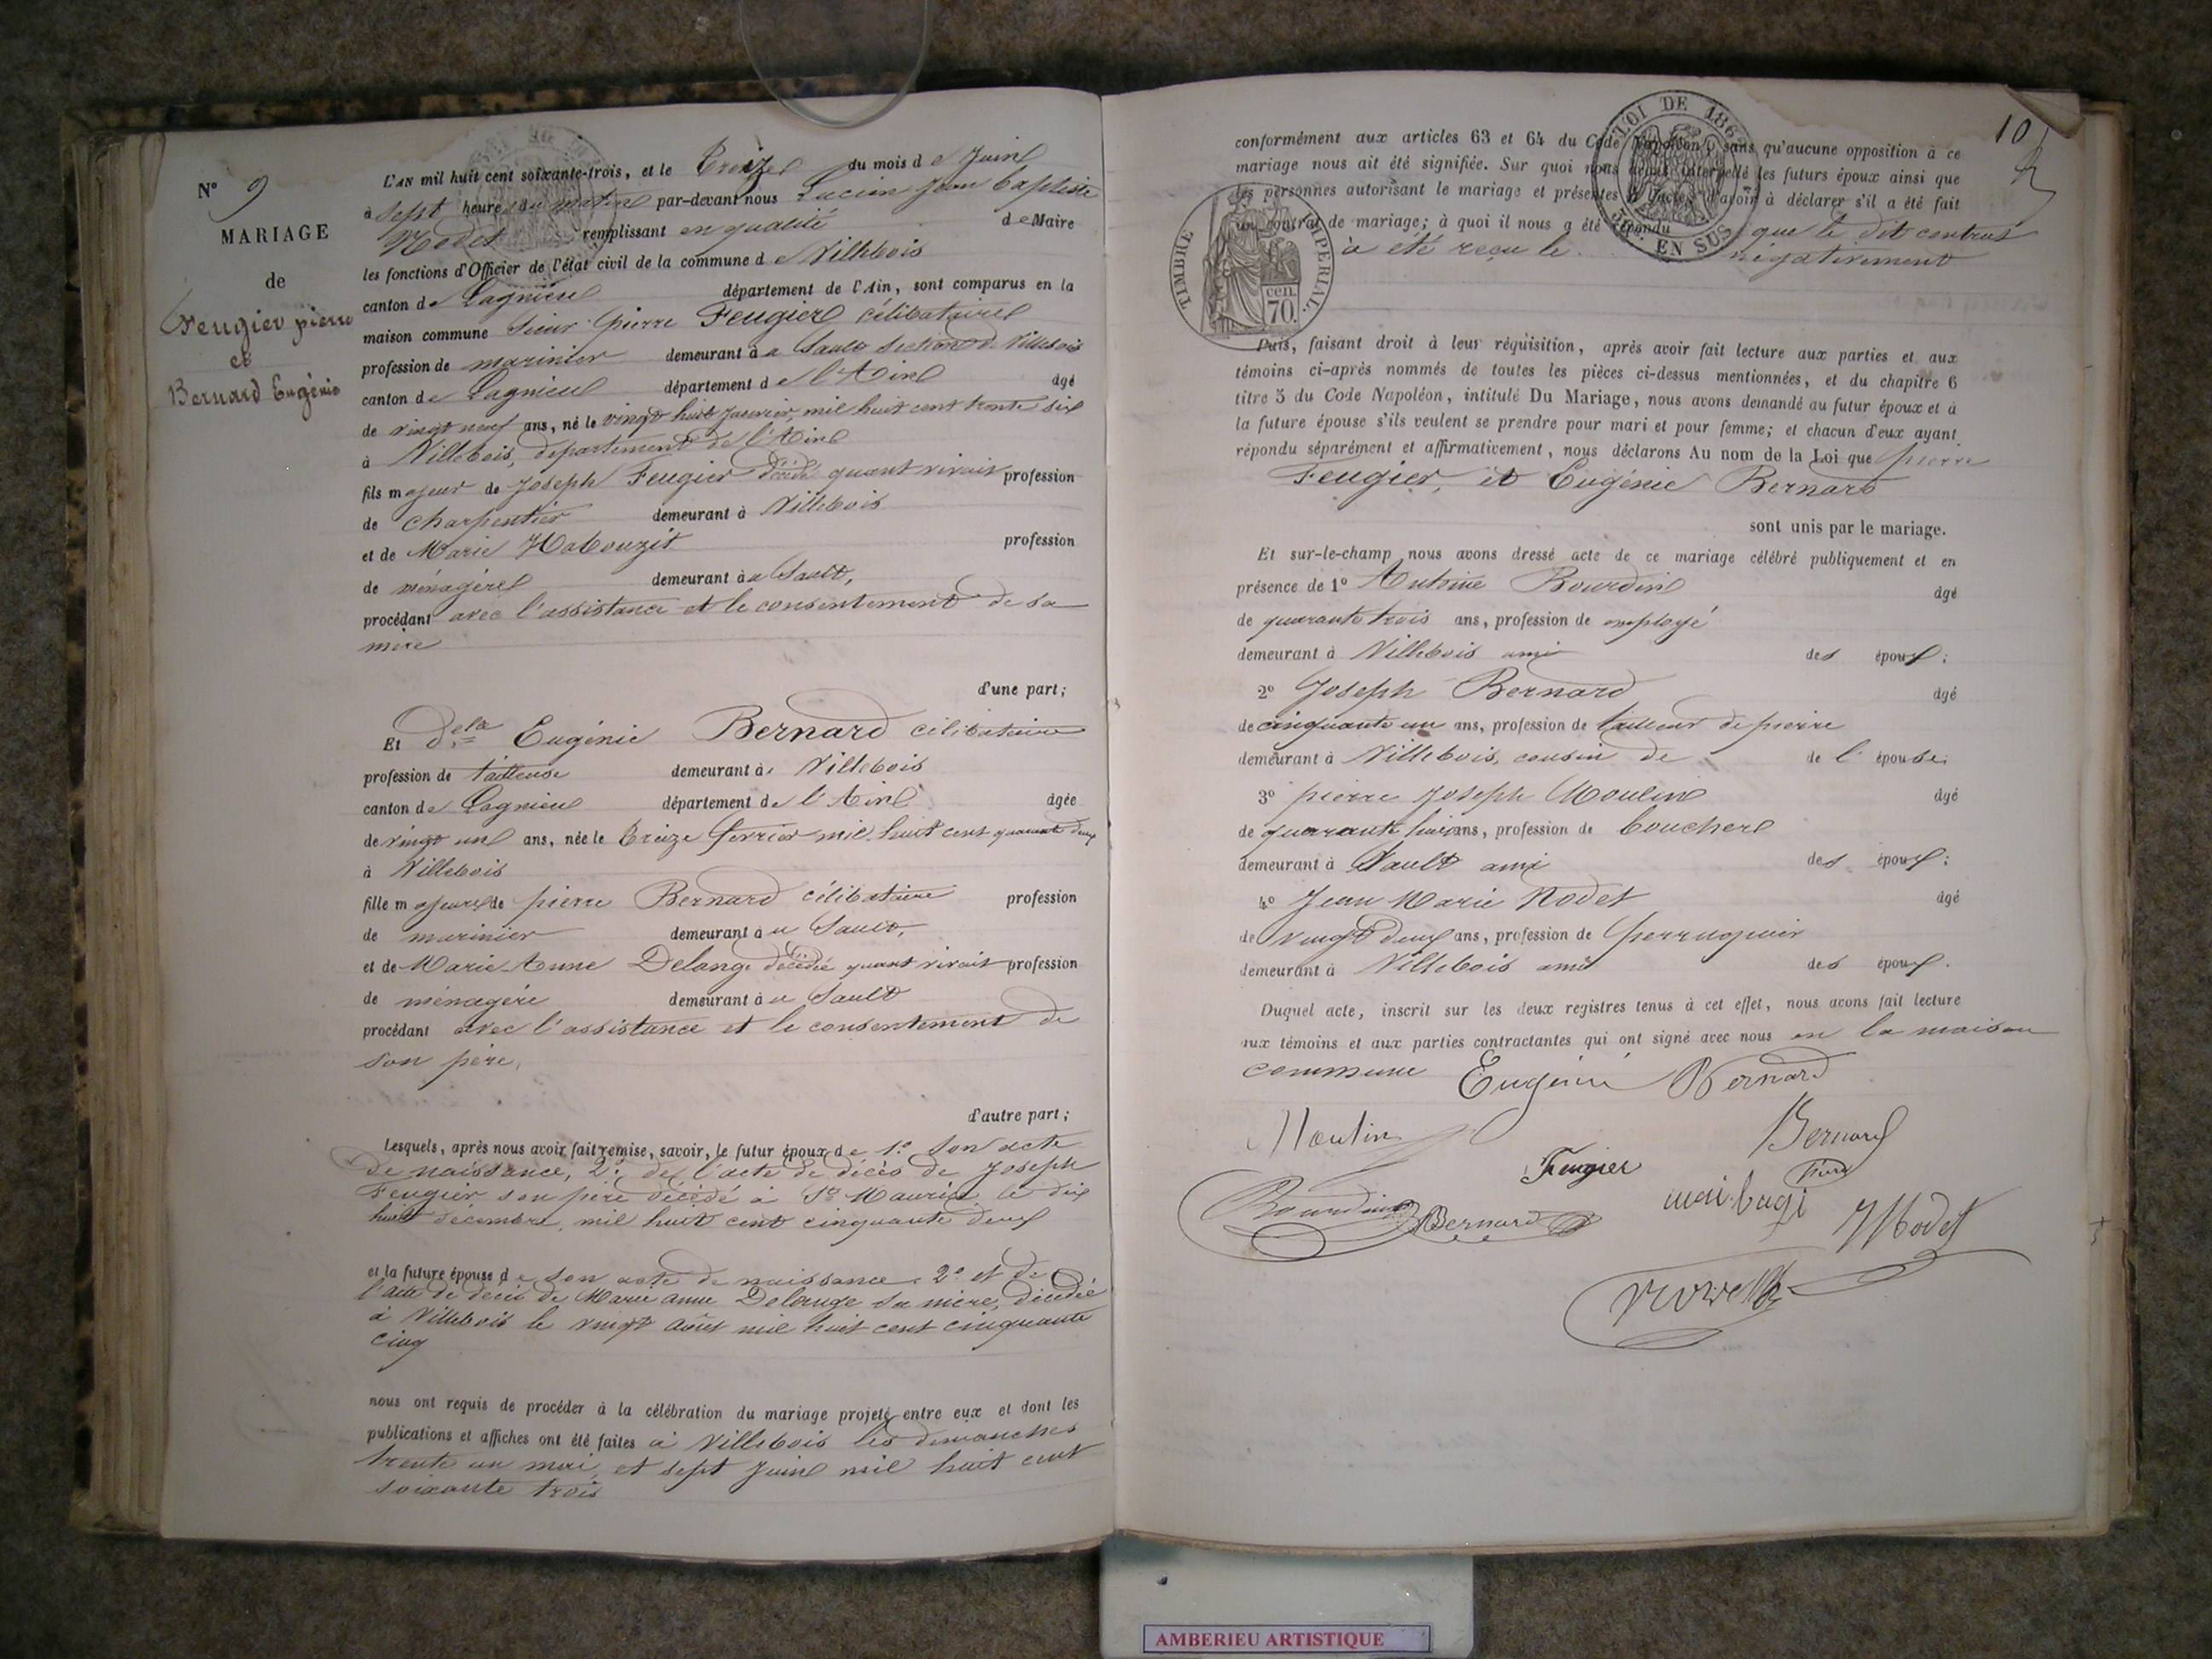 N° 9
MARIAGE
de
Feugier pierre
et
Bernard Eugénie
L'AN mil huit cent soixante-trois, et le Treize du mois de Juin
à sept heures du matin par-devant nous Lucien Jean Baptiste
Rodet remplissant en qualité de Maire
les fonctions d'Officier de l'état civil de la commune de Villebois
canton de Lagnieu département de l'Ain, sont comparus en la
maison commune Sieur pierre Feugier célibataire
profession de marinier demeurant à a Sault section de Villebois
canton de Lagnieu département de l'Ain âgé
de vingt neuf ans, né le vingt huit janvier mil huit cent trente six
à Villebois, département de l'Ain
fils majeur de Joseph Feugier décédé quant vivait profession
de charpentier demeurant à Villebois
et de Marie profession
de ménagère demeurant à a Sault,
procédant avec l'assistance et le consentement de sa
mère
d'une part;
Et delle Eugénie Bernard célibataire
profession de tailleuse demeurant à Villebois
canton de Lagnieu département de l'Ain âgée
de vingt un ans, née le treize février mil huit cent quarante deux
à Villebois
fille majeure de pierre Bernard célibataire profession
de marinier demeurant à a Sault,
et de Marie Anne Delange décédée quant vivait profession
de ménagère demeurant à a Sault
procédant avec l'assistance et le consentement de
son père,
d'autre part;
Lesquels, après nous avoir fait remise, savoir, le futur époux de 1° son acte
de naissance, 2° de l'acte de décès de Joseph
Feugier son père décédé à St Maurice le dix
huit décembre, mil huit cent cinquante deux
et la future épouse de son acte de naissance 2° et de
l'acte de décès de Marie anne Delange sa mère, décédée
à Villebois le vingt août mil huit cent cinquante
cinq
nous ont requis de procéder à la célébration du mariage projeté entre eux et dont les
publications et affiches ont été faites à Villebois les dimanches
trente un mai, et sept Juin mil huit cent
soixante trois
10
LOI DE 186
EN SUS
conformément aux articles 63 et 64 du Code Napoléon, sans qu'aucune opposition à ce
mariage nous ait été signifiée. Sur quoi nous avons interpellé les futurs époux ainsi que
les personnes autorisant le mariage et présentes à l'acte, d'avoir à déclarer s'il a été fait
un contrat de mariage; à quoi il nous a été répondu que le dit contrat
à été reçu le négativement
TIMBRE IMPERIAL
cen.
70.
Puis, faisant droit à leur réquisition, après avoir fait lecture aux parties et aux
témoins ci-après nommés de toutes les pièces ci-dessus mentionnées, et du chapitre 6
titre 5 du Code Napoléon, intitulé Du Mariage, nous avons demandé au futur époux et à
la future épouse s'ils veulent se prendre pour mari et pour femme; et chacun d'eux ayant
répondu séparément et affirmativement, nous déclarons Au nom de la Loi que pierre
Feugier, et Eugénie Bernard
sont unis par le mariage.
Et sur-le-champ nous avons dressé acte de ce mariage célébré publiquement et en
présence de 1° Antoine Bourdin âgé
de quarante trois ans, profession de employé
demeurant à Villebois ami des époux;
2° Joseph Bernard âgé
de cinquante un ans, profession de tailleur de pierre
demeurant à Villebois, cousin de de l'épouse;
3° pierre Joseph Moulin âgé
de quarante huit ans, profession de boucher
demeurant à Sault ami des époux;
4° Jean Marie Rodet âgé
de vingt deux ans, profession de perruquier
demeurant à Villebois ami des époux.
Duquel acte, inscrit sur les deux registres tenus à cet effet, nous avons fait lecture
aux témoins et aux parties contractantes qui ont signé avec nous en la maison
commune Eugénie Bernard
Moulin Bernard
Feugier
Bourdin Bernard Rodet
AMBERIEU ARTISTIQUE